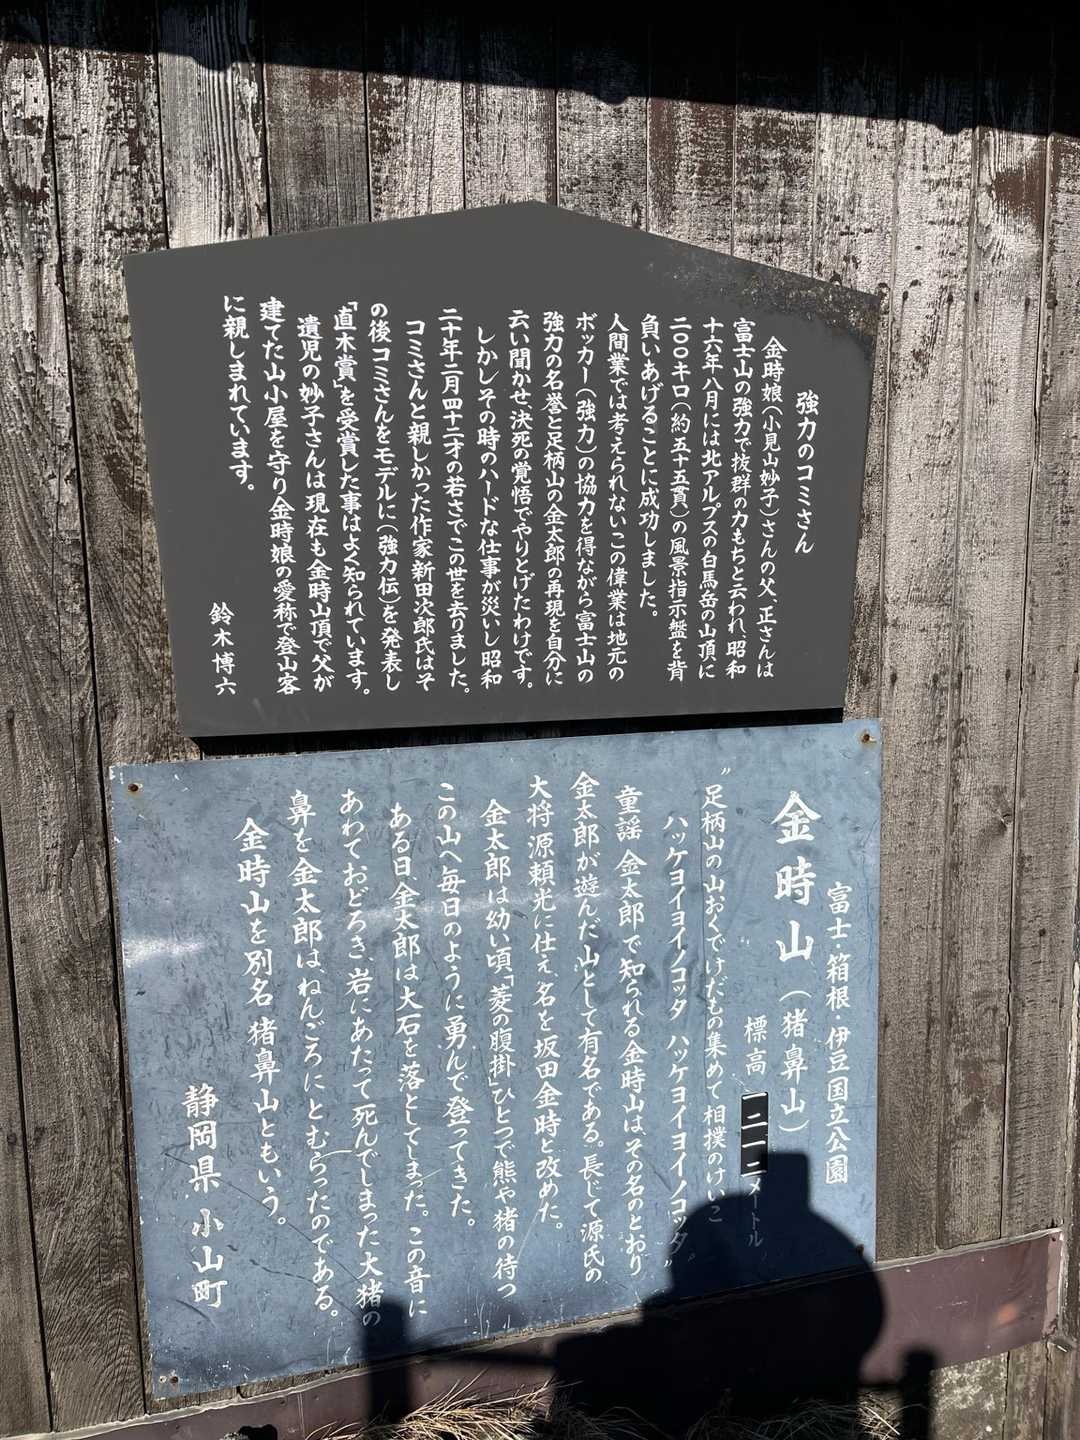 強力のコミさん
金時娘(小見山妙子)さんの父、正さんは
富士山の強力で抜群の力もちと云われ、昭和
十六年八月には北アルプスの白馬岳の山頂に
二〇〇キロ(約五十五貫)の風景指示盤を背
負いあげることに成功しました。
人間業では考えられないこの偉業は地元の
ボッカー(強力)の協力を得ながら富士山の
強力の名誉と足柄山の金太郎の再現を自分に
云い聞かせ、決死の覚悟でやりとげたわけです。
しかしその時のハードな仕事が災いし昭和
二十年二月四十二才の若さでこの世を去りました。
コミさんと親しかった作家新田次郎氏はそ
の後コミさんをモデルに(強力伝)を発表し
「直木賞」を受賞した事はよく知られています。
遺児の妙子さんは現在も金時山頂で父が
建てた山小屋を守り金時娘の愛称で登山客
に親しまれています。
鈴木博六
富士・箱根・伊豆国立公園
金時山(猪鼻山)
標高 一二一二メートル
〝足柄山の山おくでけだもの集めて相撲のけいこ
ハッケヨイヨイノコッタ ハッケヨイヨイノコッタ〟
童謡 金太郎で知られる金時山は、その名のとおり
金太郎が遊んだ山として有名である。長じて源氏の
大将源頼光に仕え、名を坂田金時と改めた。
金太郎は幼い頃「菱の腹掛」ひとつで熊や猪の待つ
この山へ毎日のように勇んで登ってきた。
ある日、金太郎は大石を落としてしまった。この音に
あわておどろき、岩にあたって死んでしまった大猪の
鼻を金太郎は、ねんごろにとむらったのである。
金時山を別名 猪鼻山ともいう。
静岡県 小山町